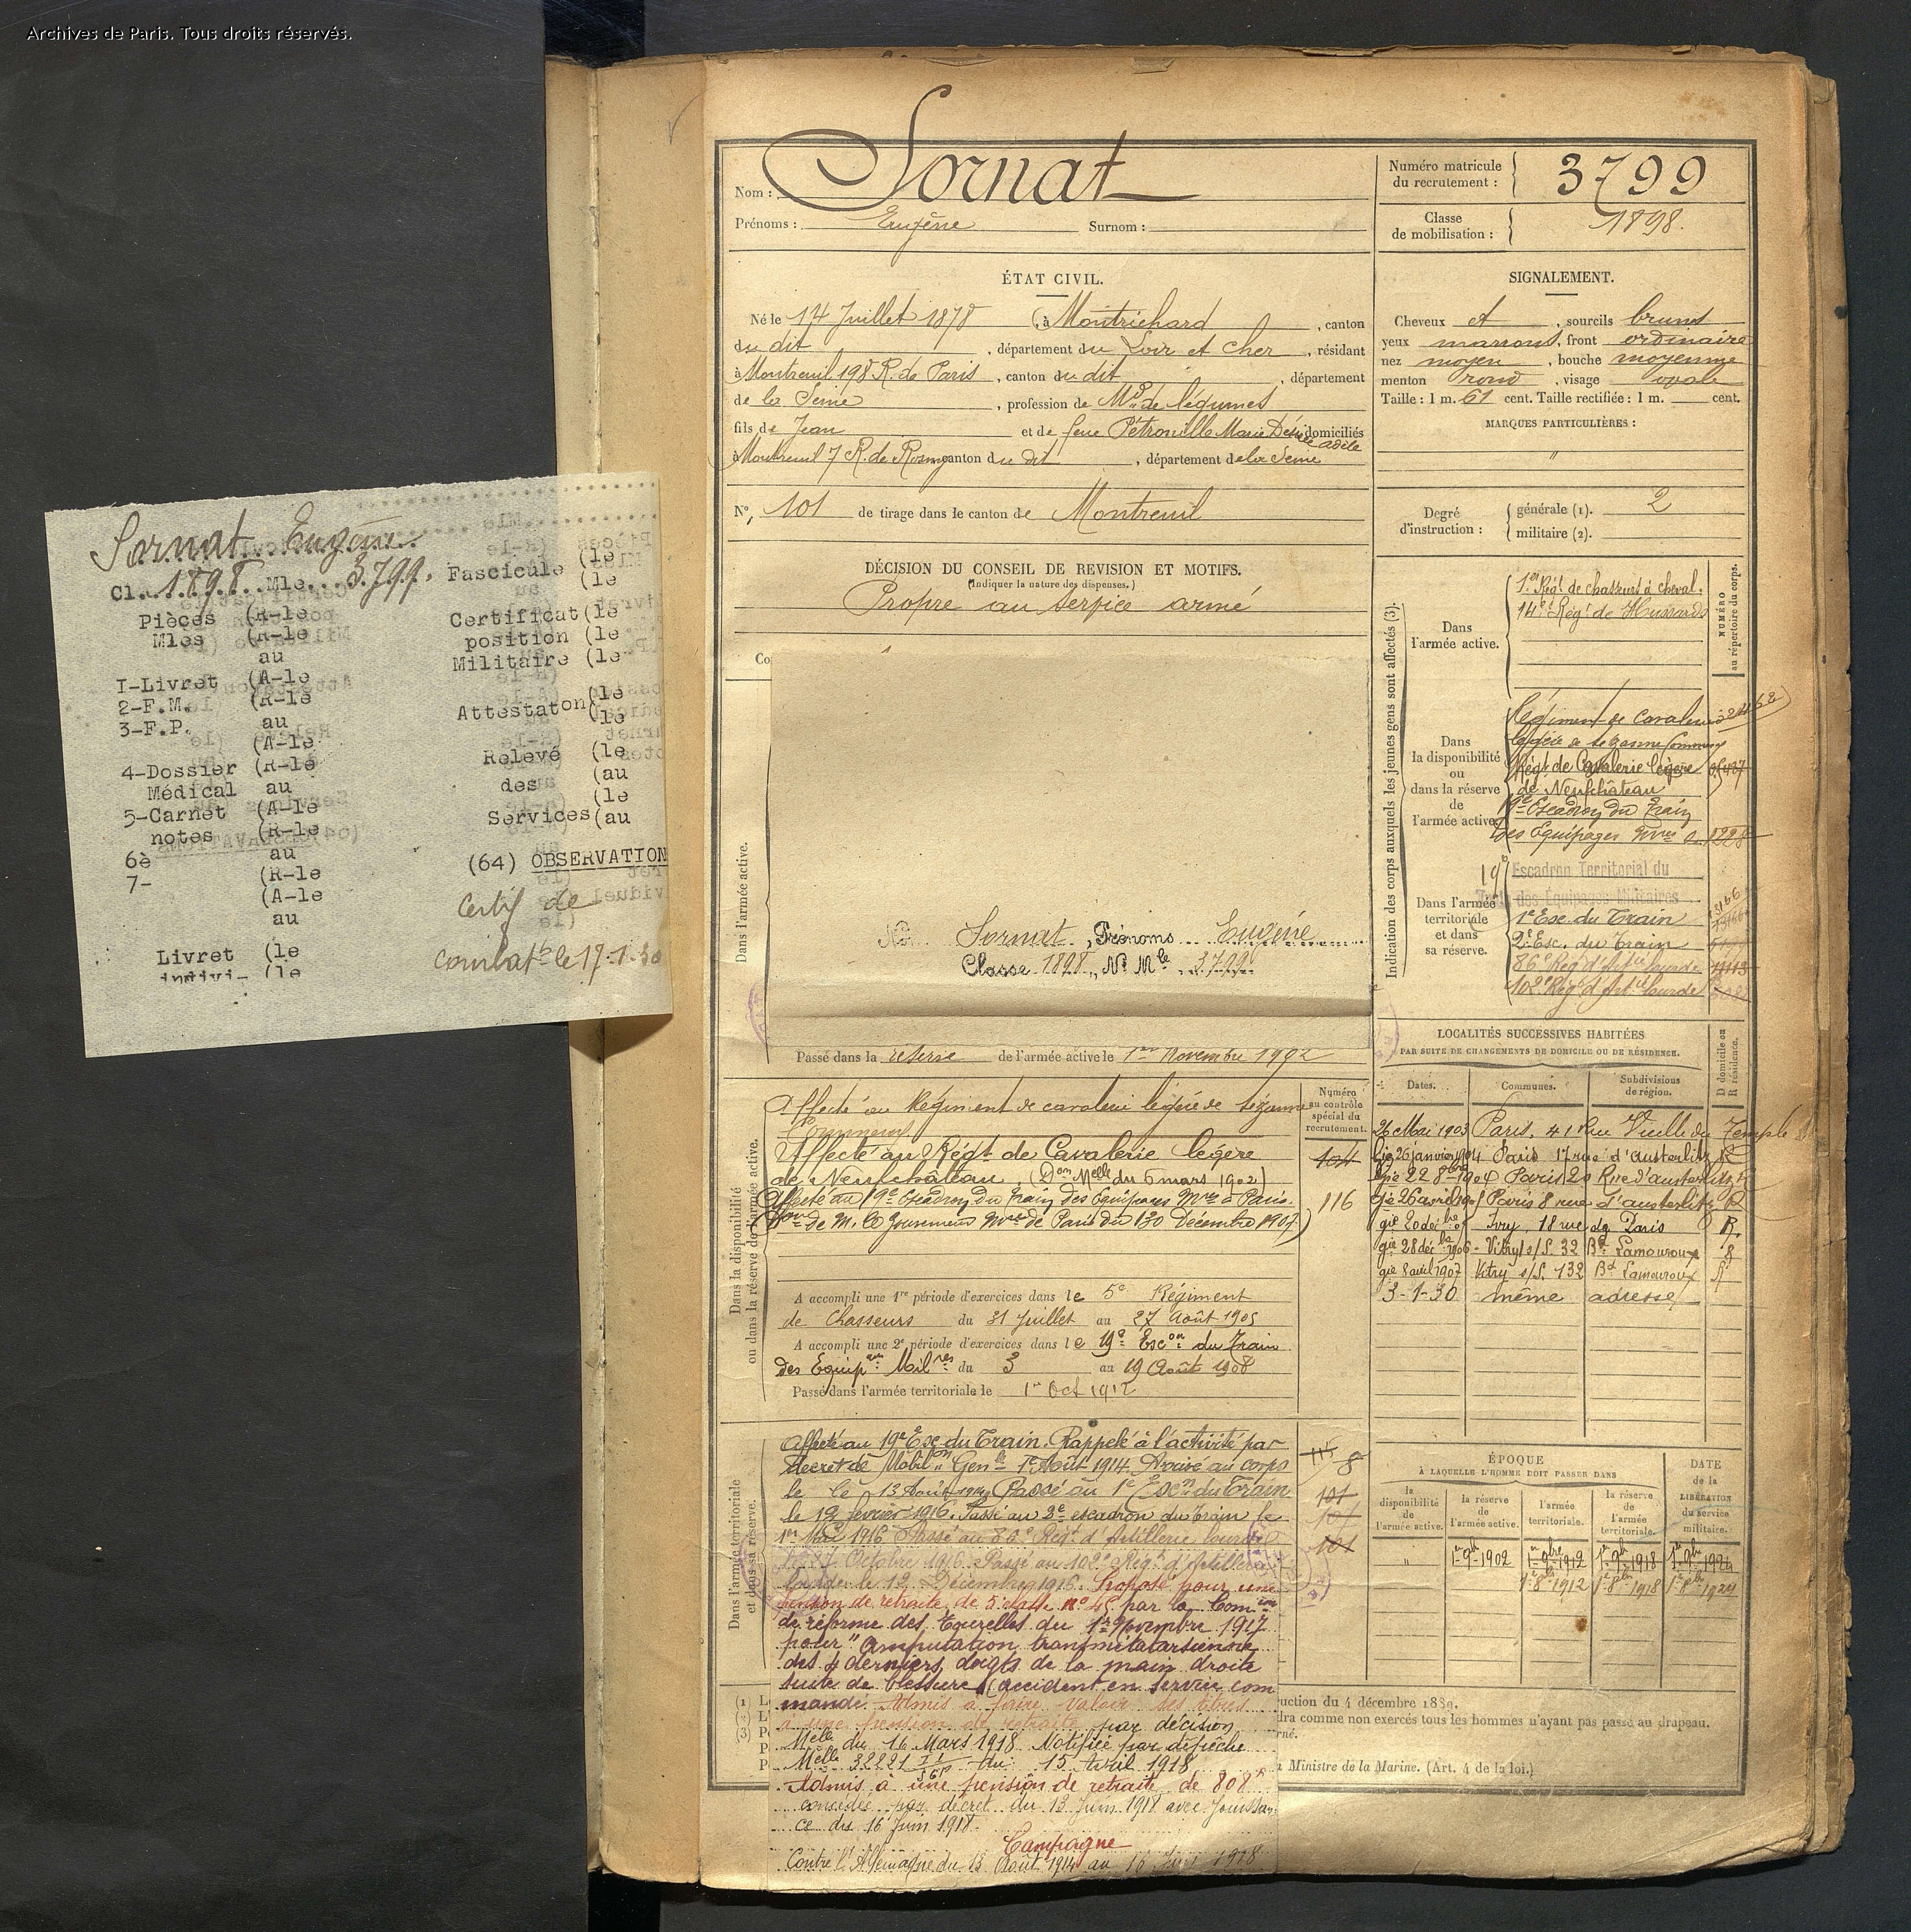 Archives de Paris. Tous droits réservés.
Nom : Sornat
Prénoms : Eugène Surnom :
Numéro matricule
du recrutement : 3799
Classe
de mobilisation : 1898.
ÉTAT CIVIL.
Né le 14 Juillet 1878 à Montrichard , canton
du dit , département du Loir et Cher , résidant
à Montreuil 198 R. de Paris , canton du dit , département
de la Seine , profession de Md de légumes
fils de Jean et de feue Pétronille Marie Désirée Adèle domiciliés
à Montreuil 7 R. de Rosny canton du dit , département de la Seine
N° 101 de tirage dans le canton de Montreuil
DÉCISION DU CONSEIL DE REVISION ET MOTIFS.
(Indiquer la nature des dispenses.)
Propre au service armé
SIGNALEMENT.
Cheveux et , sourcils bruns
yeux marrons , front ordinaire
nez moyen , bouche moyenne
menton rond , visage ovale
Taille : 1 m. 61 cent. Taille rectifiée : 1 m. cent.
MARQUES PARTICULIÈRES :
"
Degré
d'instruction :
générale (1). 2
militaire (2).
Sornat Eugène
Cl. 1898 Mle 3799. Fascicule (le
(le
Pièces (R-le Certificat (le
Mles (R-le position (le
au Militaire (le
1-Livret (A-le
2-F.M. (R-le Attestaton (le
3-F.P. au (le
(A-le
4-Dossier (R-le Relevé (le
Médical au des (au
5-Carnet (A-le (le
notes (R-le Services (au
6è au
7- (R-le (64) OBSERVATION
(A-le Certif de
au
Livret (le combatt le 17-1-30
indivi- (le
Dans l'armée active.
Nom Sornat , Prénoms Eugène
Classe 1898 , N° Mle 3799
Passé dans la réserve de l'armée active le 1er Novembre 1902
Indication des corps auxquels les jeunes gens sont affectés (3).
NUMÉRO
au répertoire du corps.
Dans
l'armée active.
1er Régt de chasseurs à cheval.
14e Régt de Hussards
Dans
la disponibilité
ou
dans la réserve
de
l'armée active.
Régiment de cavalerie
légère de Sézanne
Régt de Cavalerie légère
de Neufchâteau
19e Escadron du Train
des Equipages Mres 1228
Dans l'armée
territoriale
et dans
sa réserve.
19e Escadron Territorial du
Train des Équipages Militaires
1er Esc. du Train
2e Esc. du Train
86e Régt d'Artie lourde
102e Régt d'Artie lourde
LOCALITÉS SUCCESSIVES HABITÉES
PAR SUITE DE CHANGEMENTS DE DOMICILE OU DE RÉSIDENCE.
Dates. Communes. Subdivisions
de région. D domicile ou
R résidence.
26 Mai 1903 Paris, 41 Rue Vieille du Temple
Gie 26 janvier 1904 Paris 17 rue d'austerlitz R
Gie 22 8bre 1904 Paris 20 Rue d'austerlitz R
Gie 26 avril 1905 Paris 8 rue d'austerlitz R
gie 20 Ivry, 18 rue de Paris R.
gie 28 1906 - Vitry s/S. 32 Bd Lamouroux R
gie 8 avril 1907 Vitry s/S. 132 Bd Lamouroux R
3-1-30 même adresse
Dans la disponibilité
ou dans la réserve de l'armée active.
Numéro
au contrôle
spécial du
recrutement.
Affecté au Régiment de cavalerie légère de Sézanne
Affecté au Régt de Cavalerie légère 104
de Neufchâteau. (Don Melle du 6 mars 1902)
Affecté au 19e Escadron du Train des Equipages Mres à Paris. 116
de M. le Gouverneur Mre de Paris du 30 Décembre 1907)
A accompli une 1re période d'exercices dans le 5e Régiment
de Chasseurs du 31 Juillet au 27 Août 1905
A accompli une 2e période d'exercices dans le 19e Escon du Train
des Equipages Milres du 3 au 19 Août 1908
Passé dans l'armée territoriale le 1er Oct 1912
Dans l'armée territoriale
et dans sa réserve.
Affecté au 19e Esc. du Train. Rappelé à l'activité par
decret de Mobilon Genle 1er Août 1914. Arrivé au corps
le 13 Août 1914 Passé au 1er Escon du Train
le 19 février 1916. Passé au 2e escadron du train le
1er 1916 Passé au 86e Régt d'Artillerie lourde
le Octobre 1916. Passé au 102e Régt d'Artillerie
lourde le 12 Décembre 1916. Proposé pour une
pension de retraite de 5e classe n° 45 par la Comon
de réforme des Tourelles du 1er Novembre 1917
pour "Amputation transmétatarsienne
des 4 derniers doigts de la main droite
suite de blessure (accident en service com
mandé. Admis à faire valoir ses titres
à une pension de retraite par décision
Melle du 16 Mars 1918. Notifiée par dépêche
Melle 32221 du 15 Avril 1918
Admis à une pension de retraite de 808f
concédée par décret du 13 Juin 1918 avec jouissan-
ce du 16 Juin 1918.
Campagne
Contre l'Allemagne du 13 Août 1914 au 16 Juin 1918
ÉPOQUE
À LAQUELLE L'HOMME DOIT PASSER DANS
la
disponibilité
de
l'armée active.
la réserve
de
l'armée active.
l'armée
territoriale.
la réserve
de
l'armée
territoriale.
DATE
de la
LIBÉRATION
du service
militaire.
" 1er 9bre 1902 1er 9bre 1912 1er 9bre 1918 1er 9bre 1924
1er 8bre 1912 1er 8bre 1918 1er 8bre 1924
(1)
(2)
(3)
uction du 4 décembre 1889.
dra comme non exercés tous les hommes n'ayant pas passé au drapeau.
rné.
Ministre de la Marine. (Art. 4 de la loi.)